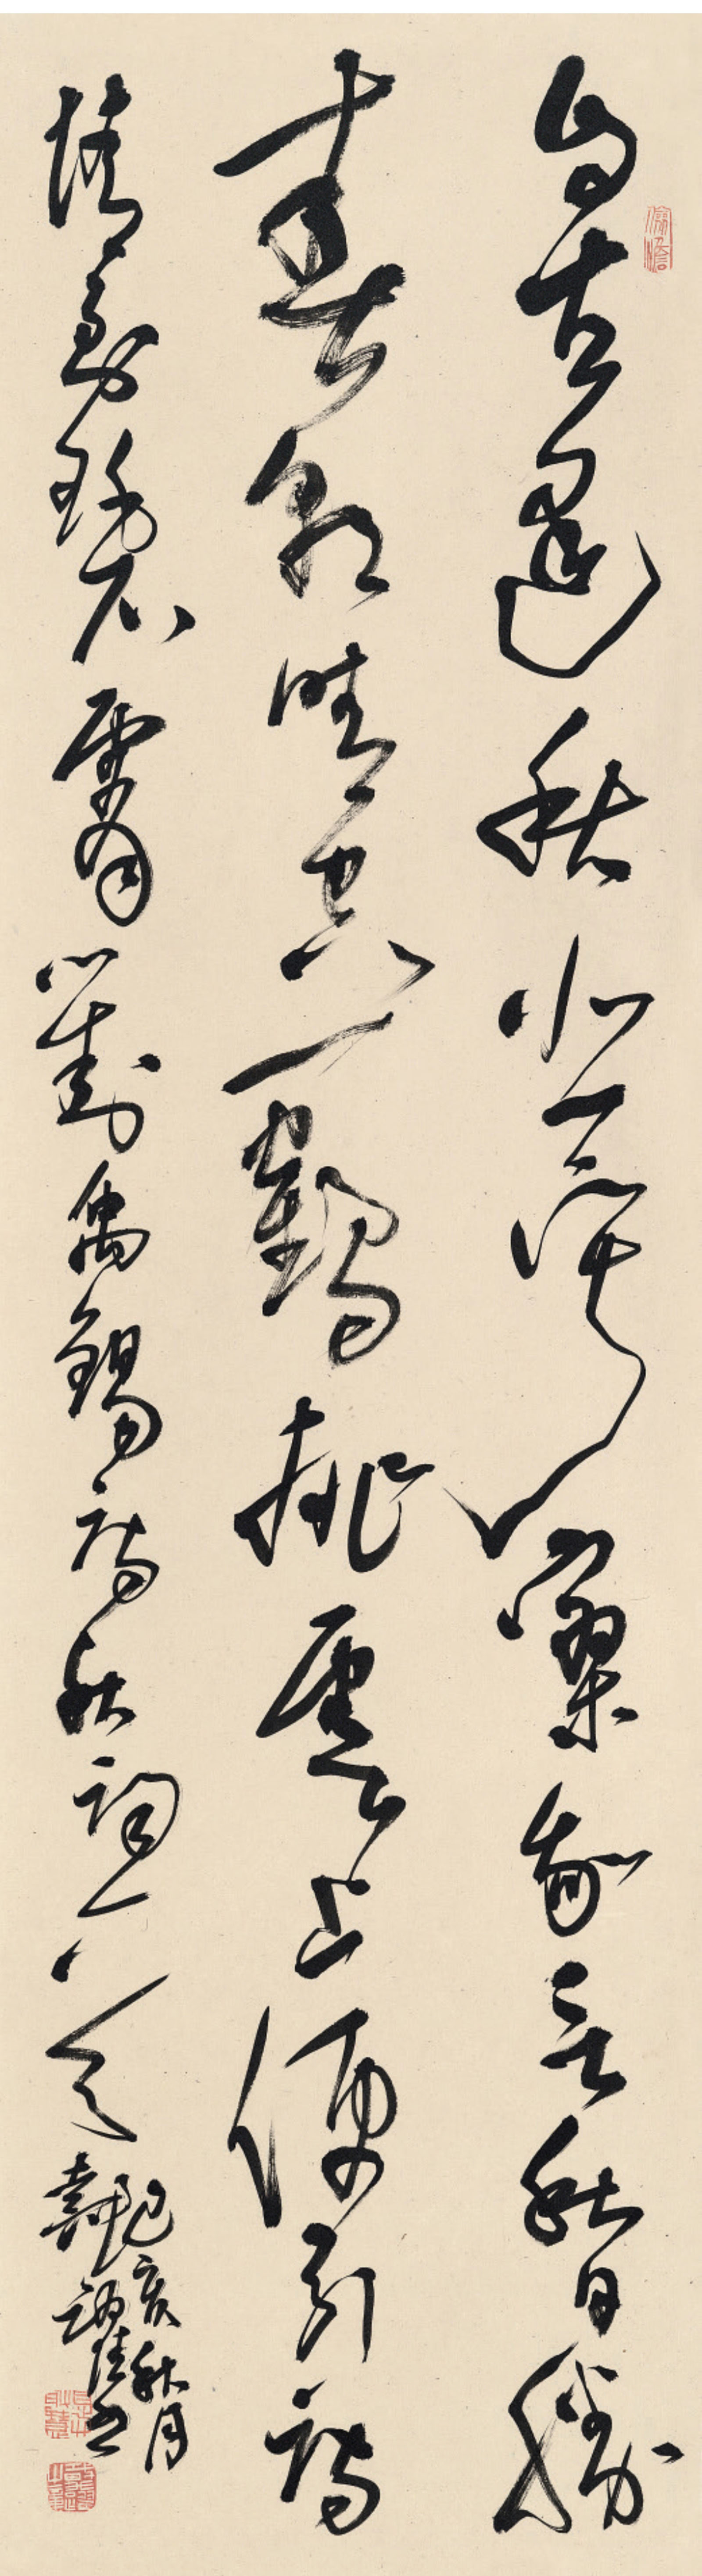 自古逢秋悲寂寥我言秋日勝
春朝晴空一鶴排雲上便引詩
情到碧霄劉禹錫詩秋詞
己亥秋月
書